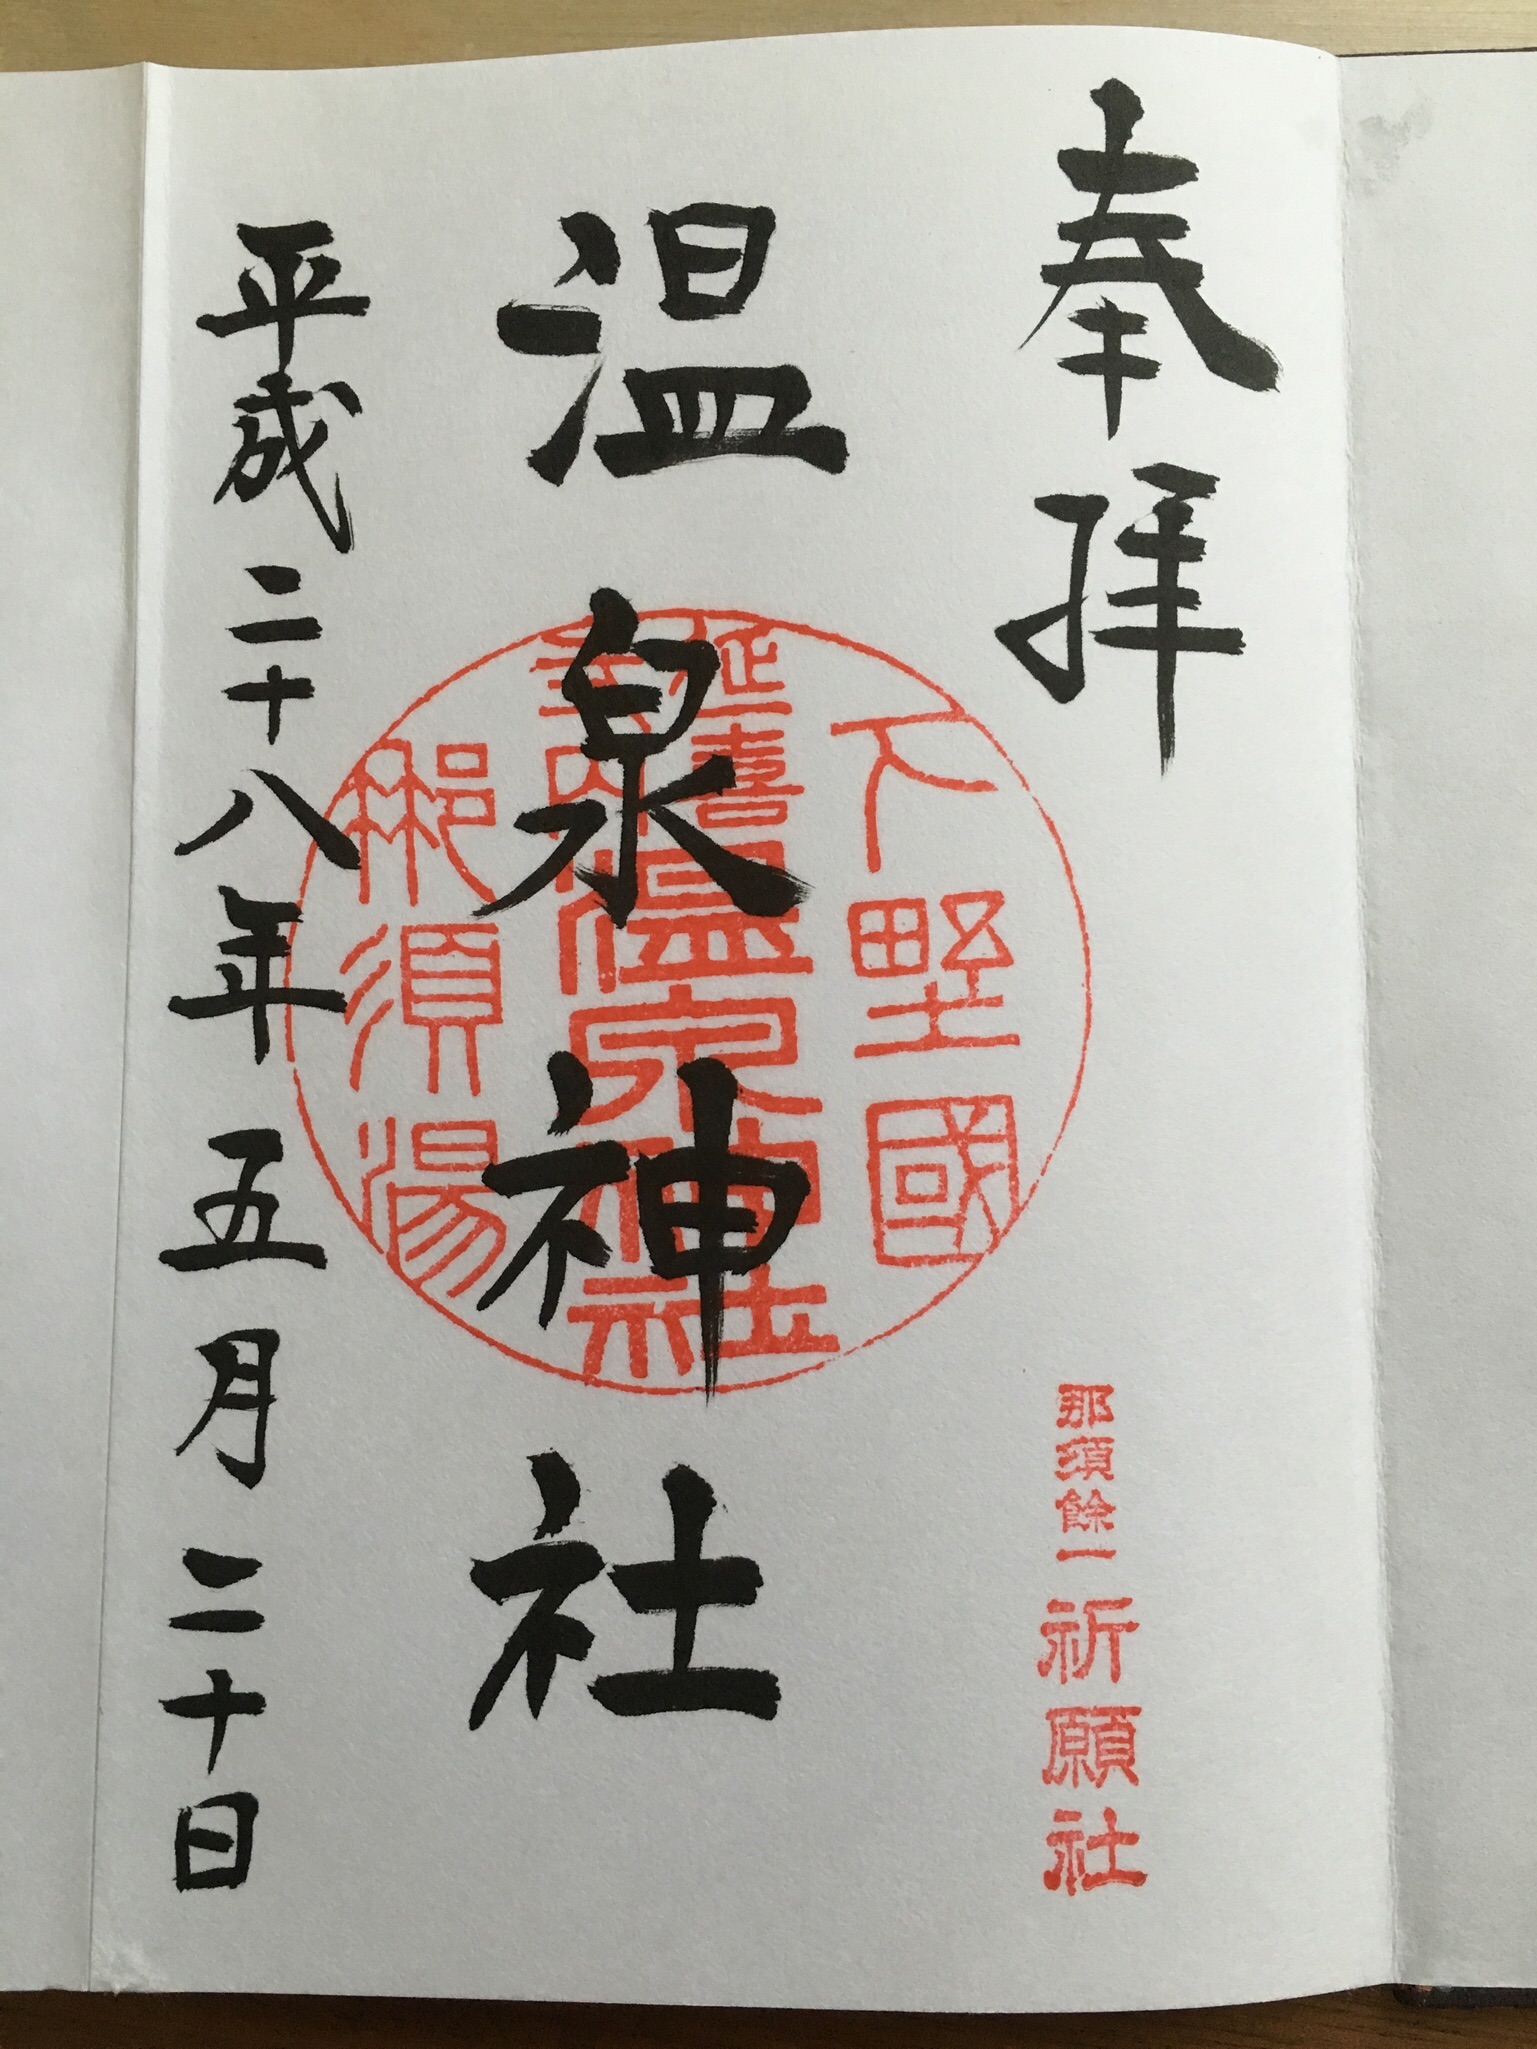 奉拝
那須餘一祈願社
温泉神社
下野國
延喜式内温泉神社
那須湯
平成二十八年五月二十日